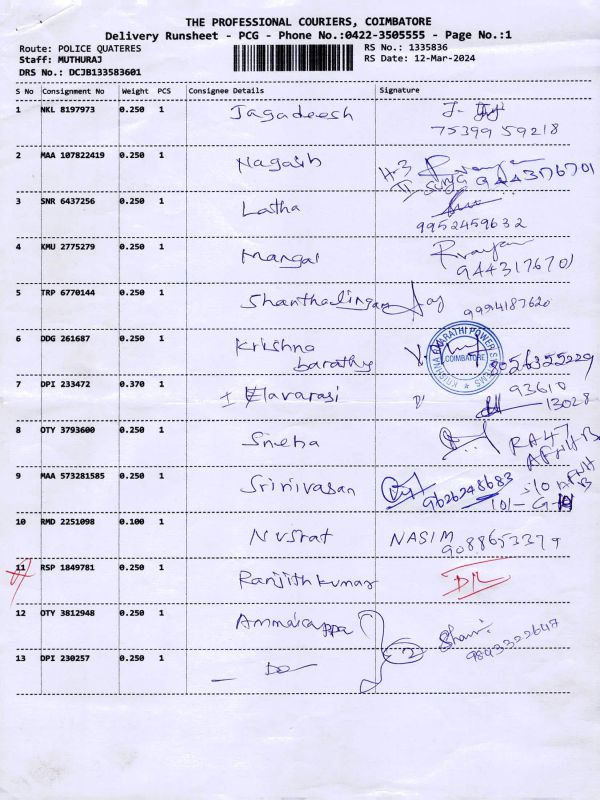 THE PROFESSIONAL COURIERS, COIMBATORE
Delivery Runsheet - PCG - Phone No.:0422-3505555 - Page No.:1
Route: POLICE QUATERES RS No.: 1335836
Staff: MUTHURAJ RS Date: 12-Mar-2024
DRS No.: DCJB133583601
S No Consignment No Weight PCS Consignee Details Signature
1 NKL 8197973 0.250 1 Jagadeesh J.
75399 59218
2 MAA 107822419 0.250 1 Nagasib H-3
II Surya 9443176701
3 SNR 6437256 0.250 1 Latha
9952459632
4 KMU 2775279 0.250 1 Mangal
9443176701
5 TRP 6770144 0.250 1 Shanthalingam 9994187620
6 DDG 261687 0.250 1 Krishna
barathy V. 8056355229
KRISHNA BHARATHI POWER SYSTEMS
COIMBATORE
7 DPI 233472 0.370 1 Elavarasi 93610
13028
8 OTY 3793600 0.250 1 Sneha RA47
9 MAA 573281585 0.250 1 Srinivasan 9626248683 S/O
10/-
10 RMD 2251098 0.100 1 Nusrat NASIM
9088653379
11 RSP 1849781 0.250 1 Ranjith kumar
12 OTY 3812948 0.250 1 Ammaicappa
9843322647
13 DPI 230257 0.250 1 - Do 2